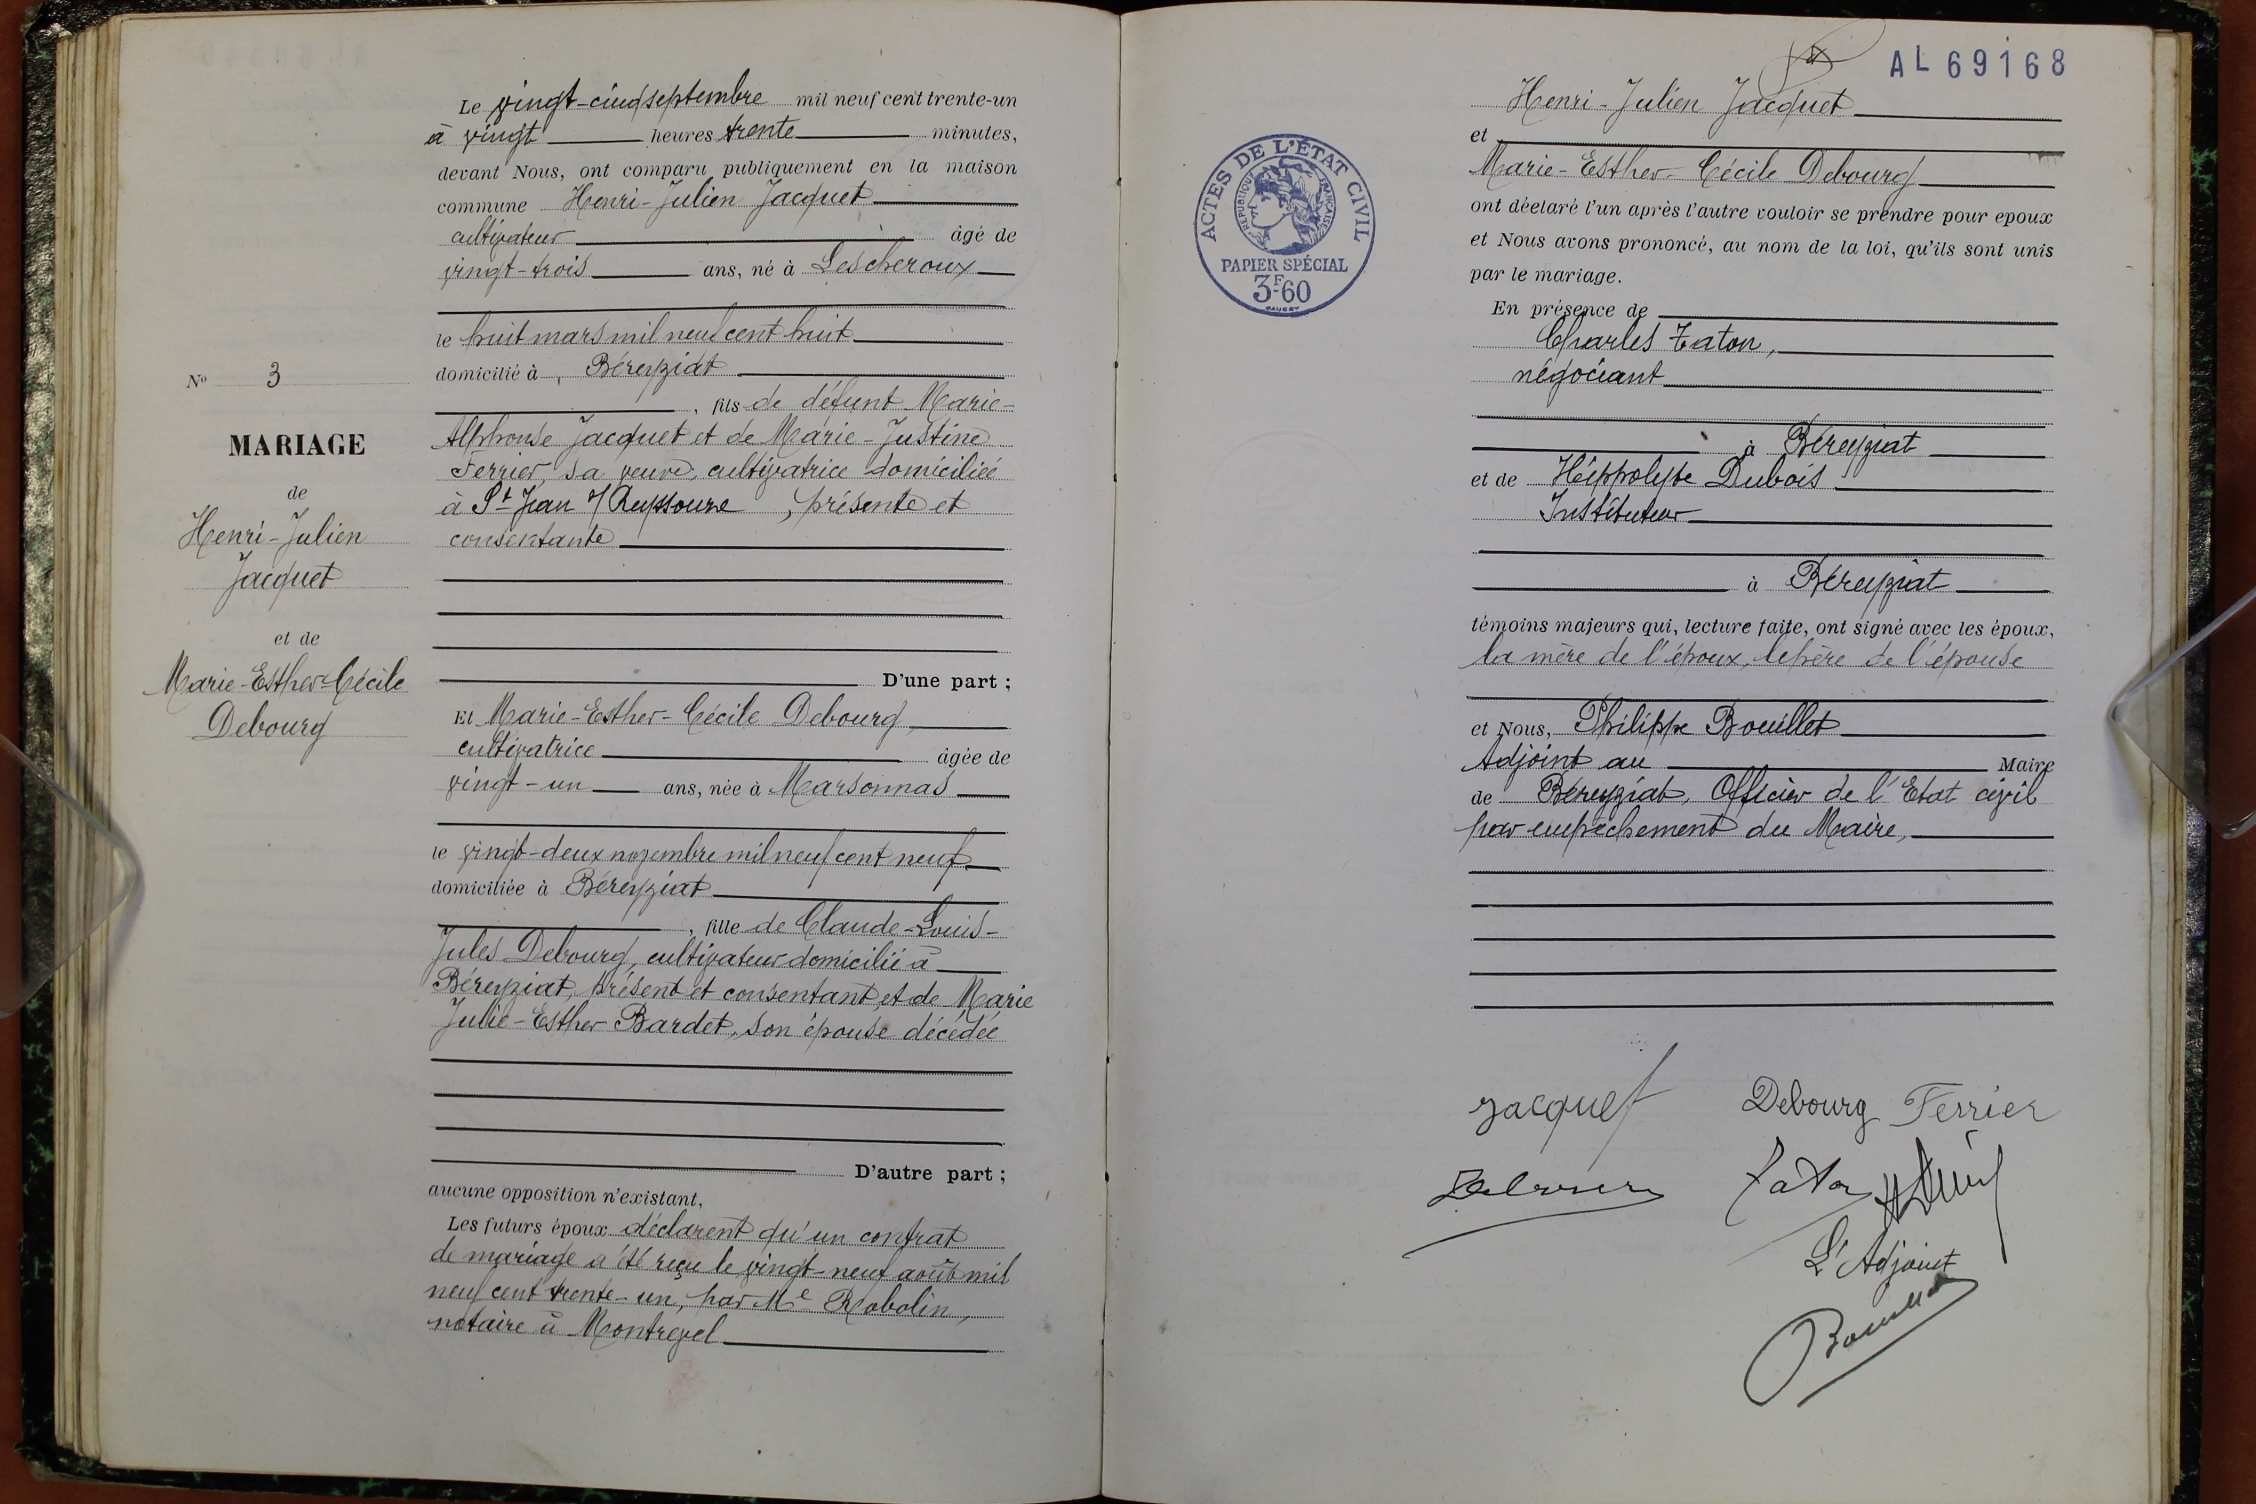 Nº 3
MARIAGE
de
Henri-Julien
Jacquet
et de
Marie-Esther-Cécile
Debourg
Le vingt-cinq septembre mil neuf cent trente-un
à vingt heures trente minutes,
devant Nous, ont comparu publiquement en la maison
commune Henri-Julien Jacquet
cultivateur âgé de
vingt-trois ans, né à Lescheroux
le huit mars mil neuf cent huit
domicilié à, Béreyziat
, fils de défunt Marie-
Alphonse Jacquet et de Marie-Justine
Ferrier, sa veuve, cultivatrice domiciliée
à St Jean s/ Reyssouze, présente et
consentante
D'une part ;
Et Marie-Esther-Cécile Debourg,
cultivatrice âgée de
vingt-un ans, née à Marsonnas
le vingt-deux novembre mil neuf cent neuf
domiciliée à Béreyziat
, fille de Claude-Louis-
Jules Debourg, cultivateur domicilié à
Béreyziat, présent et consentant, et de Marie
Julie-Esther Bardet, son épouse décédée
D'autre part ;
aucune opposition n'existant,
Les futurs époux déclarent qu'un contrat
de mariage a été reçu le vingt-neuf août mil
neuf cent trente-un, par Me Robolin,
notaire à Montrevel
AL 69168
ACTES DE L'ÉTAT CIVIL
RÉPUBLIQUE FRANÇAISE
PAPIER SPÉCIAL
3F60
Henri-Julien Jacquet
et
Marie-Esther-Cécile Debourg
ont déclaré l'un après l'autre vouloir se prendre pour epoux
et Nous avons prononcé, au nom de la loi, qu'ils sont unis
par le mariage.
En présence de
Charles Taton,
négociant
à Béreyziat
et de Hippolyte Dubois
Instituteur
à Béreyziat
témoins majeurs qui, lecture faite, ont signé avec les époux,
la mère de l'époux, le père de l'épouse
et Nous, Philippe Bouillet
Adjoint au Maire
de Béreyziat, Officier de l'Etat civil
par empêchement du Maire,
Jacquet Debourg Ferrier
Debourg Taton
L'Adjoint
Bouillet